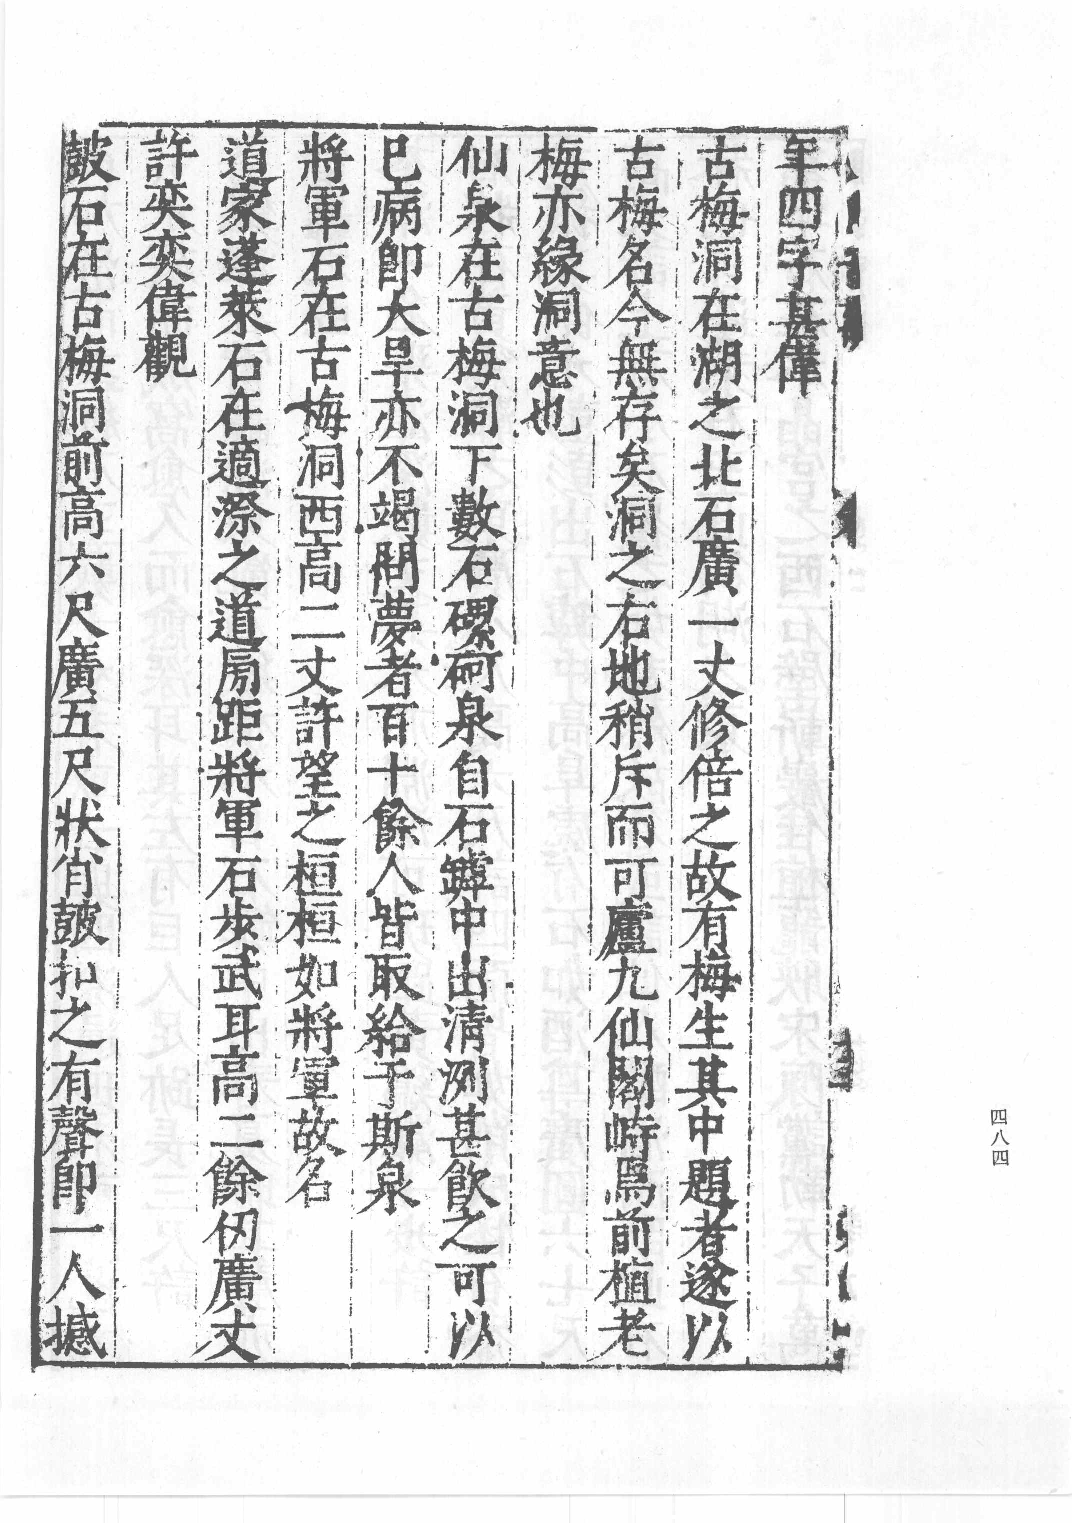 年四字甚偉
古梅洞在湖之北石廣一丈修倍之故有梅生其中題者遂以
古梅名今無存矣洞之右地稍斥而可廬九仙閣峙焉前植老
梅亦緣洞意也
仙泉在古梅洞下數石磥砢泉自石罅中出清洌甚飲之可以
已病即大旱亦不竭問夢者百十餘人皆取給于斯泉
將軍石在古梅洞西高二丈許望之桓桓如將軍故名
道家蓬萊石在適漈之道房距將軍石步武耳高二餘仞廣丈
許奕奕偉觀
皷石在古梅洞前高六尺廣五尺狀肖皷扣之有聲即一人撼
四八四